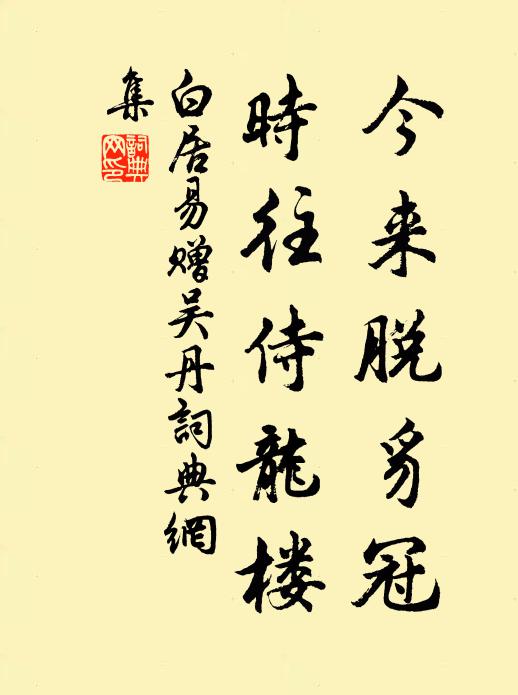 今来脱豸冠
時往侍龍楼
白居易赠吴丹詞典網
集
詞典網印